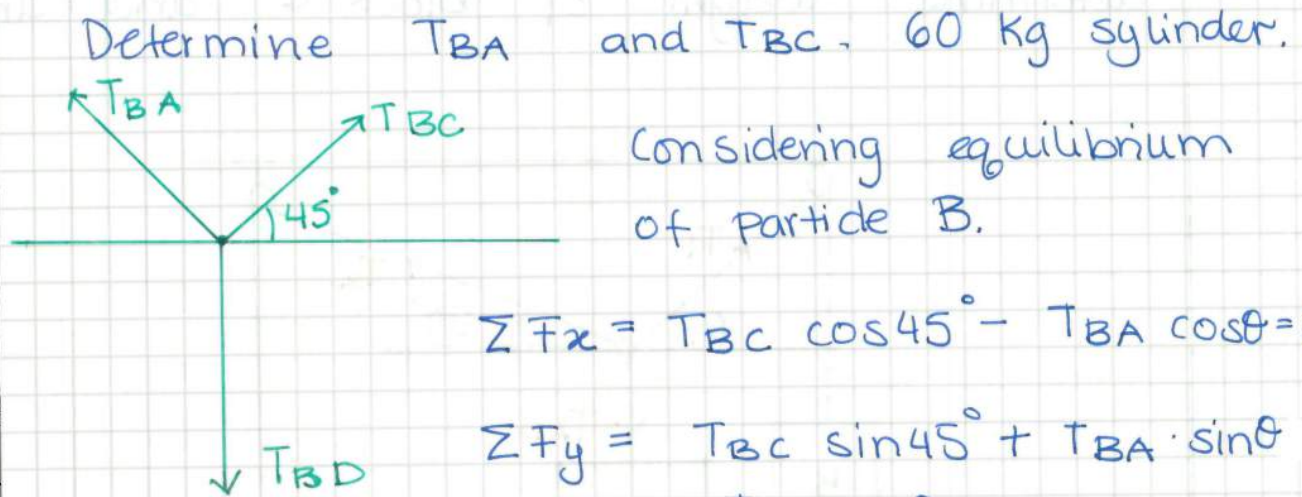 Determine TBA and TBC. 60 kg sylinder.
TBA
TBC
45°
Considering equilibrium
of particle B.
ΣFx = TBC cos45° - TBA cosθ=
ΣFy = TBC sin45° + TBA · sinθ
TBD